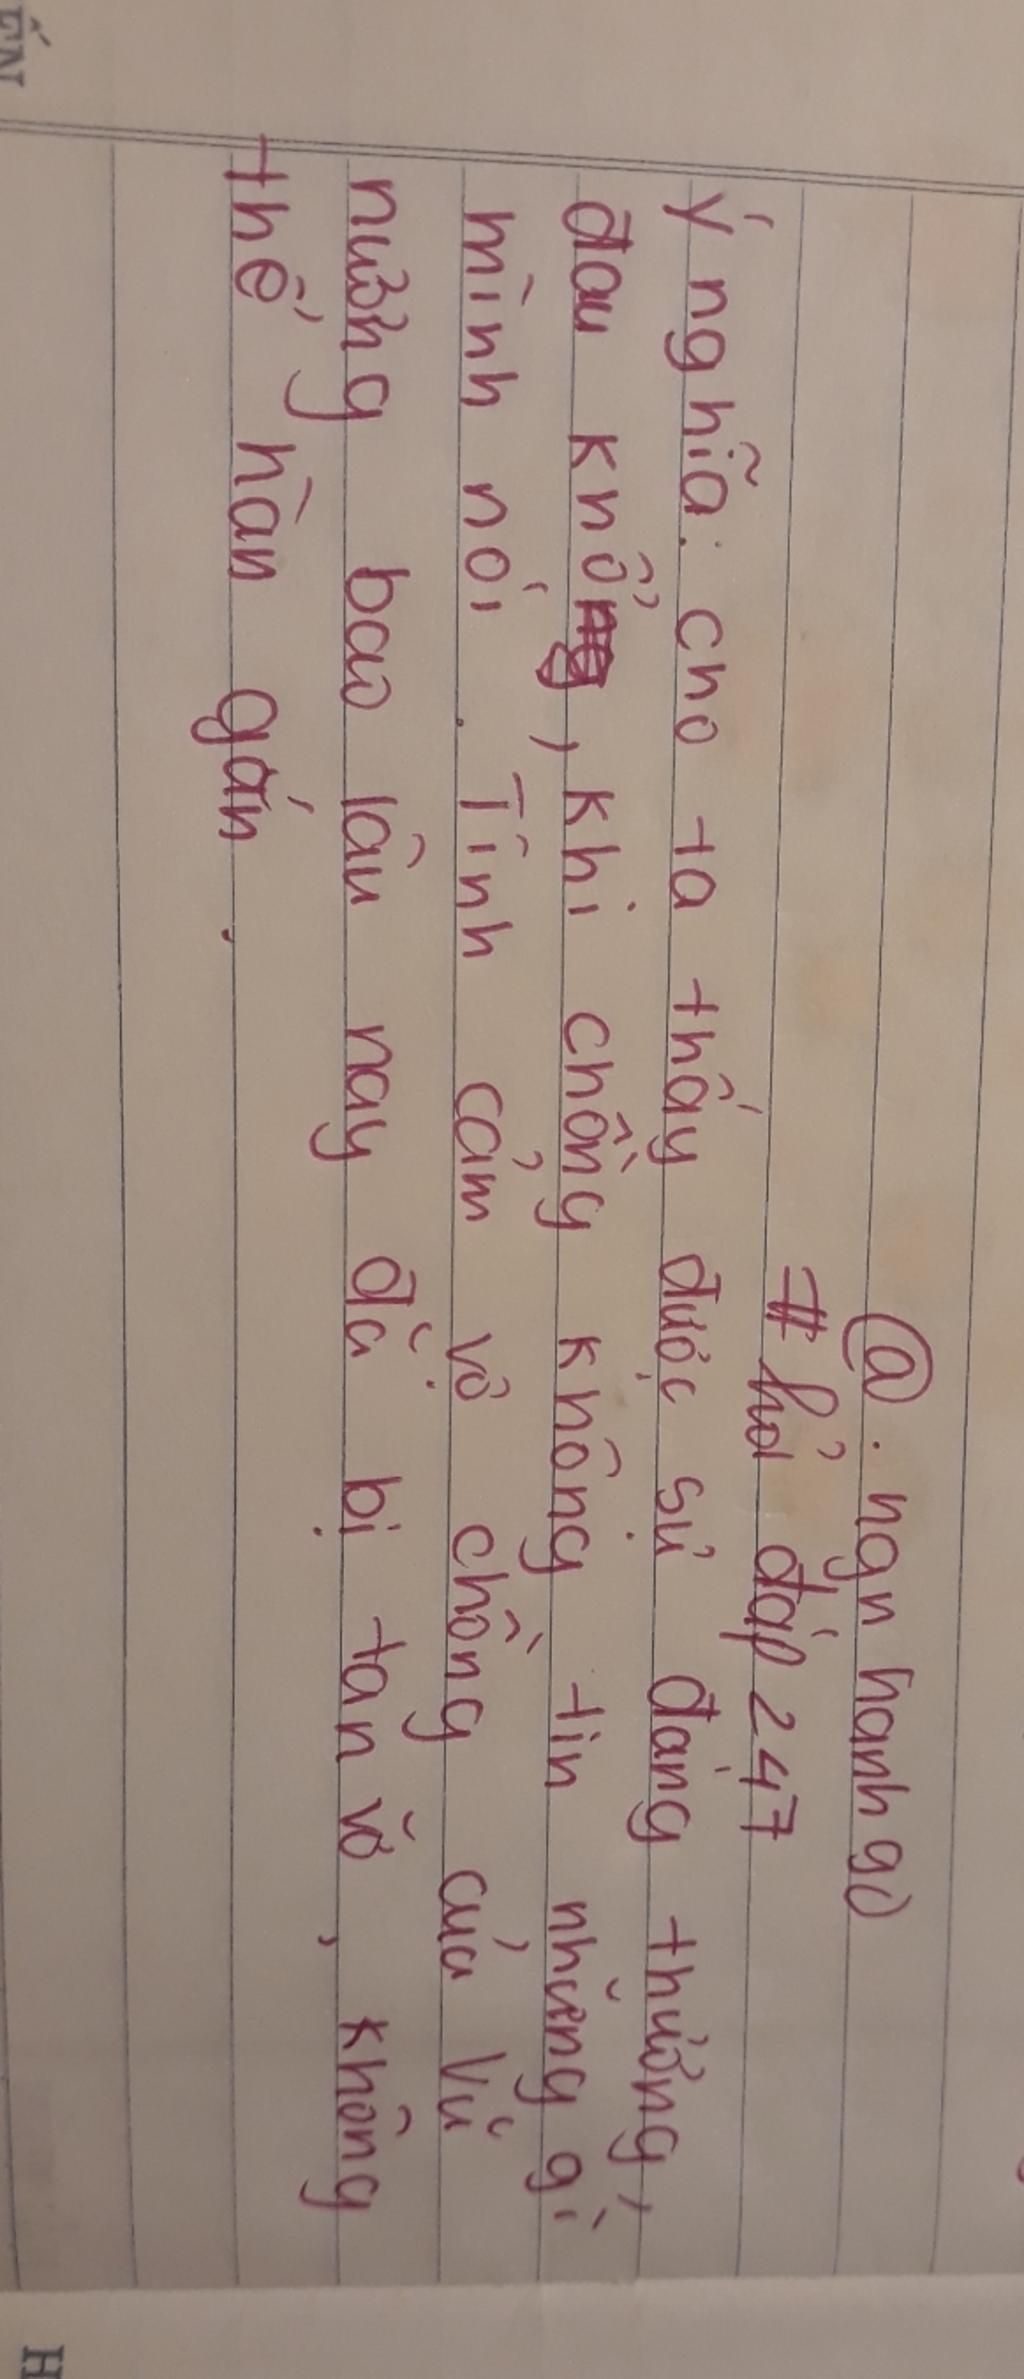 @. ngan hanh gò
# hỏi đáp 247
ý nghĩa: cho ta thấy được sự đáng thương,
đau khổ, khi chồng không tin những gì
mình nói. Tình cảm vợ chồng của Vũ
nương bao lâu nay đã bị tan vỡ, không
thể hàn gắn.
ẾN
H